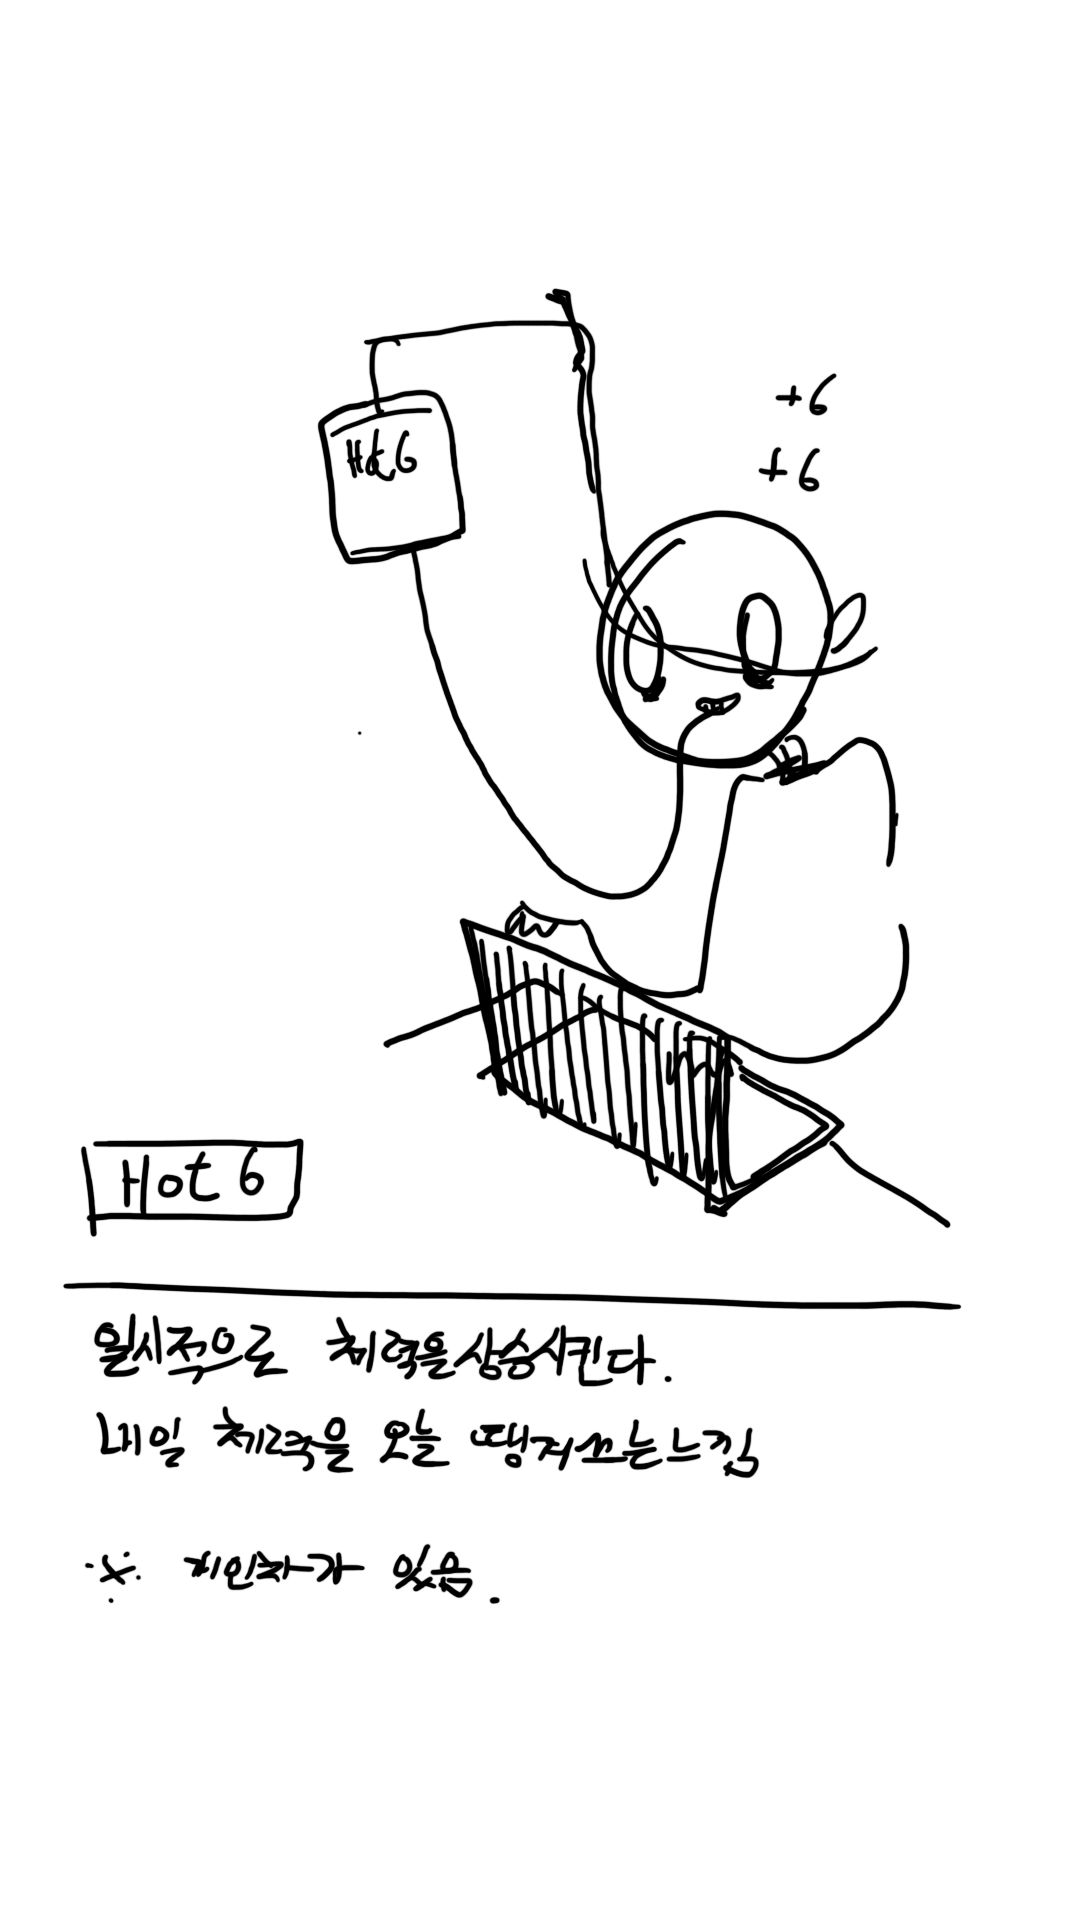 +6
+6
Hot6
Hot 6
일시적으로 체력을상승시킨다.
내일 체력을 오늘 땡겨쓰는느낌
※. 개인차가 있음.